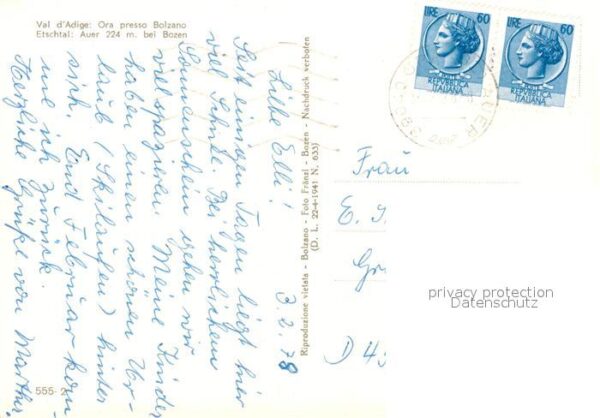 Val d'Adige: Ora presso Bolzano
Etschtal: Auer 224 m. bei Bozen
3.2.78
Liebe Elli!
Seit einigen Tagen liegt hier
viel Schnee. Bei herrlichem
Sonnenschein gehen wir
viel spazieren. Meine Kinder
haben einen schönen Ur-
laub (Skilaufen) hinter
sich. End Februar kom-
me ich zurück.
Herzliche Grüße von Martha.
555-2
Riproduzione vietata - Bolzano - Foto Fränzl - Bozen - Nachdruck verboten
(D. L. 22-4-1941 N. 633)
LIRE 60
REPUBBLICA
ITALIANA
LIRE 60
REPUBBLICA
ITALIANA
AUER
Frau
E. I
Gr
D 43
privacy protection
Datenschutz